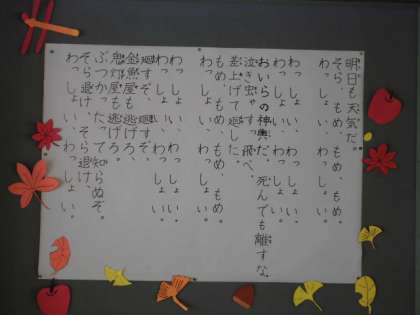 明日も天気だ。
そら、もめ、もめ、もめ。
わっしょい、わっしょい。
わっしょい、わっしょい。
わっしょい、わっしょい。
おいらの神輿だ。死んでも離すな。
泣き虫ゃすっ飛べ。
差上げて廻した。
もめ、もめ、もめ、もめ。
わっしょい、わっしょい。
わっしょい、わっしょい。
わっしょい、わっしょい。
廻すぞ、廻すぞ、
金魚屋も逃げろ、
鬼灯屋も逃げろ、
ぶつかったって知らぬぞ。
そら退け、そら退け、
わっしょい、わっしょい。